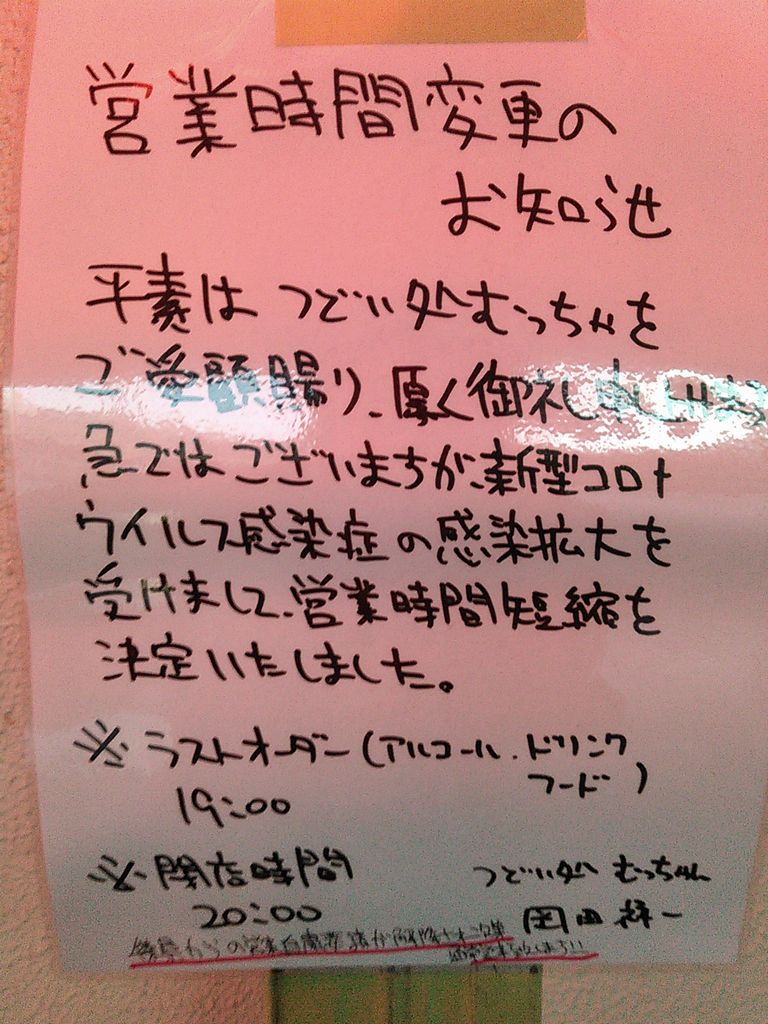 営業時間変更の
お知らせ
平素は つどい処むっちゃを
ご愛顧賜り、厚く御礼申し上げます
急ではございまちが、新型コロナ
ウイルス感染症の感染拡大を
受けまして、営業時間短縮を
決定いたしました。
※ラストオーダー(アルコール、ドリンク
フード)
19:00
※閉店時間
20:00
つどい処 むっちゃん
岡田
からの営業自粛要請が解除され次第